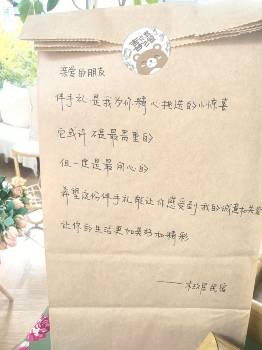 亲爱的朋友
伴手礼是我为你精心挑选的小惊喜
它或许不是最贵重的
但一定是最用心的
希望这份伴手礼能让你感受到我的诚意和关爱
让你的生活更加美好和精彩
民宿